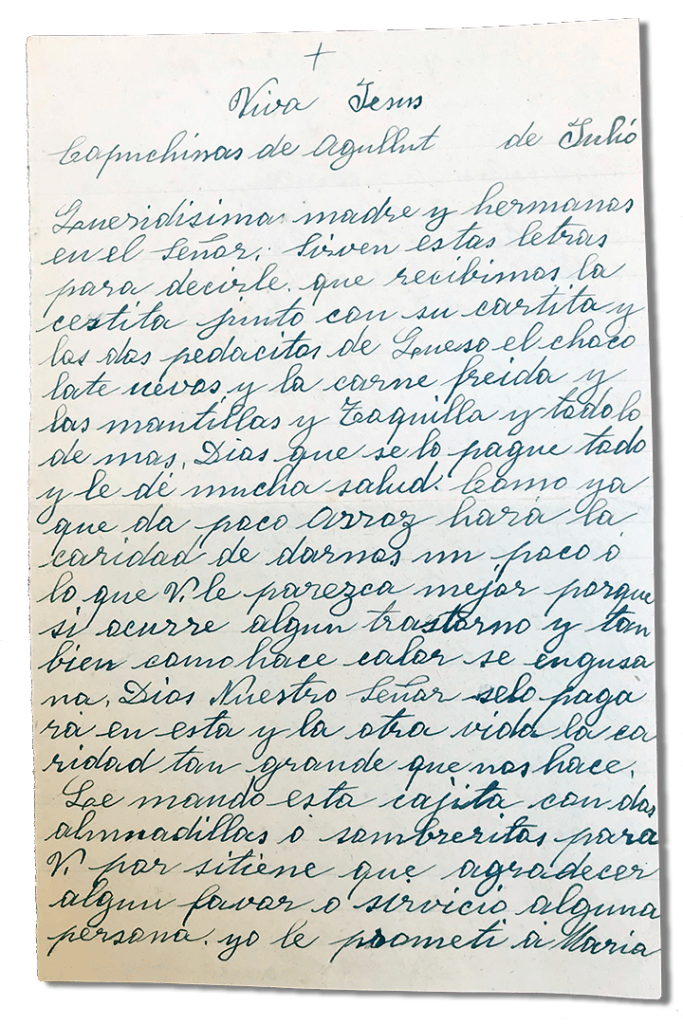 +
Viva Jesus
Capuchinas de Agullut de Julio
Queridisima madre y hermanas
en el Señor: Sirven estas letras
para decirle. que recibimos la
cestita junto con su cartita y
los dos pedacitos de Queso el choco
late uevos y la carne freida y
las mantillas y Toquilla y todo lo
de mas. Dios que se lo pague todo
y le dé mucha salud. Como ya
que da poco Arroz hará la
caridad de darnos un poco ó
lo que V. le parezca mejor porque
si ocurre algun trastorno y tan
bien como hace calor se engusa
na. Dios Nuestro Señor selo paga
rá en esta y la otra vida la ca
ridad tan grande que nos hace.
Le mando esta cajita con dos
almuadillas ó sombreritos para
V. por sitiene que agradecer
algun favor o sirvicio alguna
persona. yo le prometi á Maria